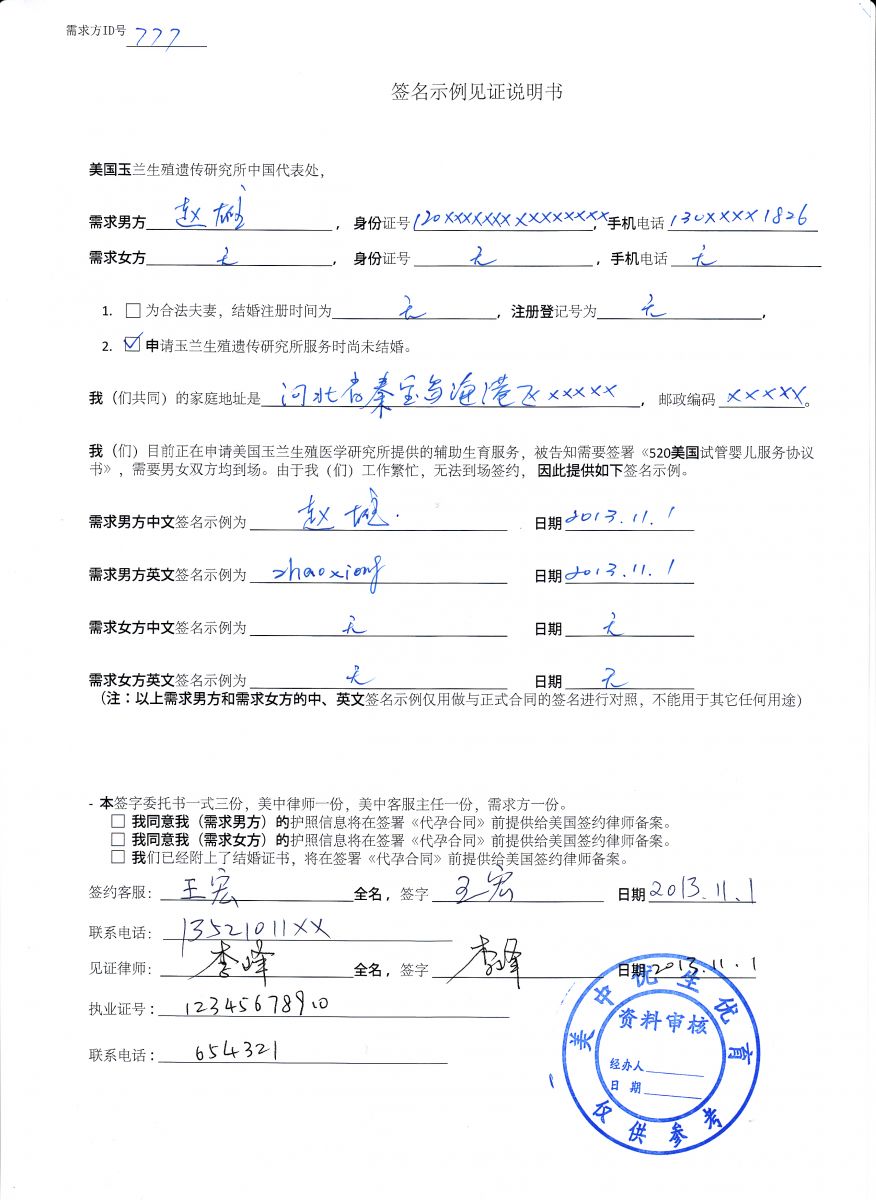 需求方ID号 777
签名示例见证说明书
美国玉兰生殖遗传研究所中国代表处，
需求男方 赵雄 ，身份证号 120XXXXXXXXXXXXXXX，手机电话 130XXXX1826
需求女方 无 ，身份证号 无 ，手机电话 无
1. □ 为合法夫妻，结婚注册时间为 无 ，注册登记号为 无 ，
2. ☑ 申请玉兰生殖遗传研究所服务时尚未结婚。
我（们共同）的家庭地址是 河北省秦皇岛海港区XXXXX ，邮政编码 XXXXX。
我（们）目前正在申请美国玉兰生殖医学研究所提供的辅助生育服务，被告知需要签署《520美国试管婴儿服务协议
书》，需要男女双方均到场。由于我（们）工作繁忙，无法到场签约，因此提供如下签名示例。
需求男方中文签名示例为 赵雄. 日期 2013.11.1
需求男方英文签名示例为 zhaoxiong 日期 2013.11.1
需求女方中文签名示例为 无 日期 无
需求女方英文签名示例为 无 日期 无
（注：以上需求男方和需求女方的中、英文签名示例仅用做与正式合同的签名进行对照，不能用于其它任何用途）
- 本签字委托书一式三份，美中律师一份，美中客服主任一份，需求方一份。
□ 我同意我（需求男方）的护照信息将在签署《代孕合同》前提供给美国签约律师备案。
□ 我同意我（需求女方）的护照信息将在签署《代孕合同》前提供给美国签约律师备案。
□ 我们已经附上了结婚证书，将在签署《代孕合同》前提供给美国签约律师备案。
签约客服： 王宏 全名，签字 王宏 日期 2013.11.1
联系电话： 13521011XX
见证律师： 李峰 全名，签字 李峰 日期 2013.11.1
执业证号： 12345678910
联系电话： 654321
美中优生优育
资料审核
经办人
日期
仅供参考